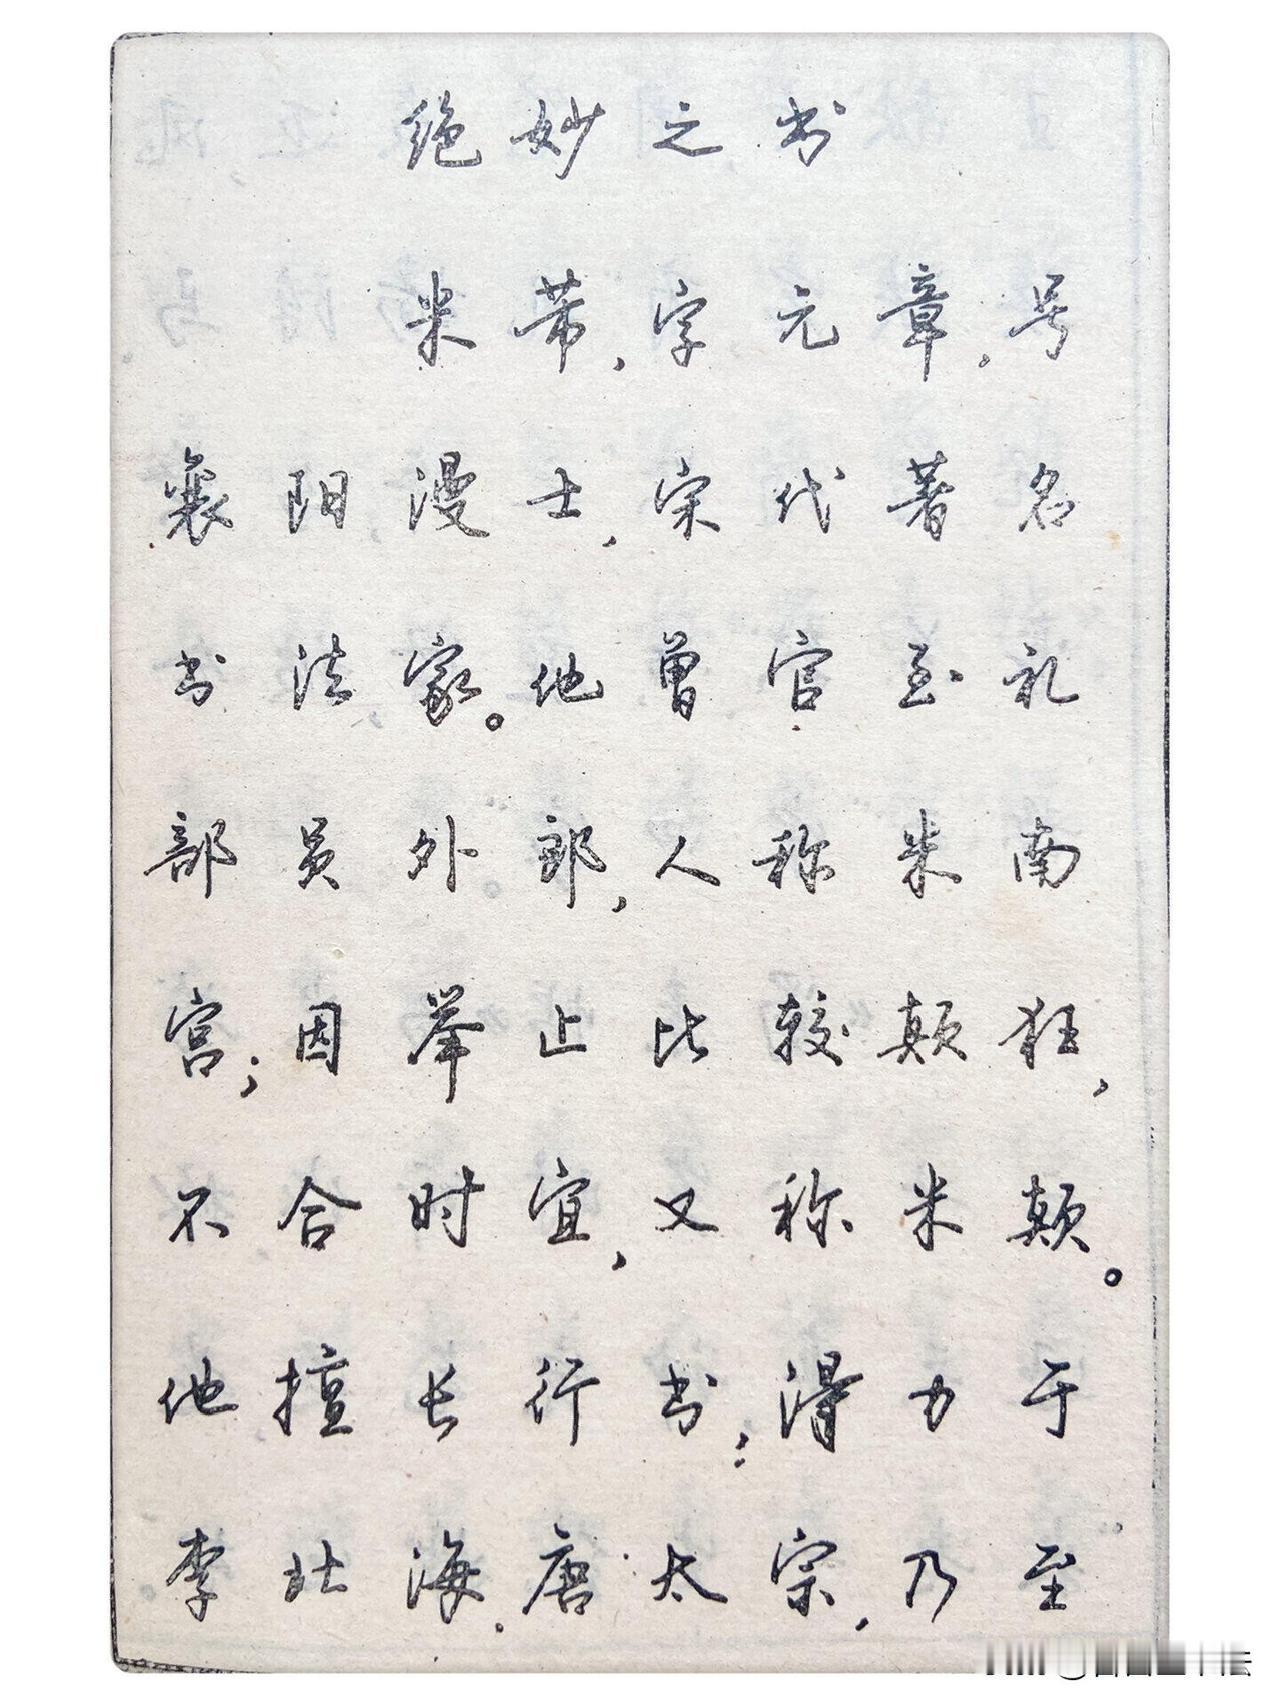 绝妙之书
米芾,字元章,号
襄阳漫士,宋代著名
书法家。他曾官至礼
部员外郎,人称米南
宫;因举止比较颠狂,
不合时宜,又称米颠。
他擅长行书,得力于
李北海.唐太宗,乃至